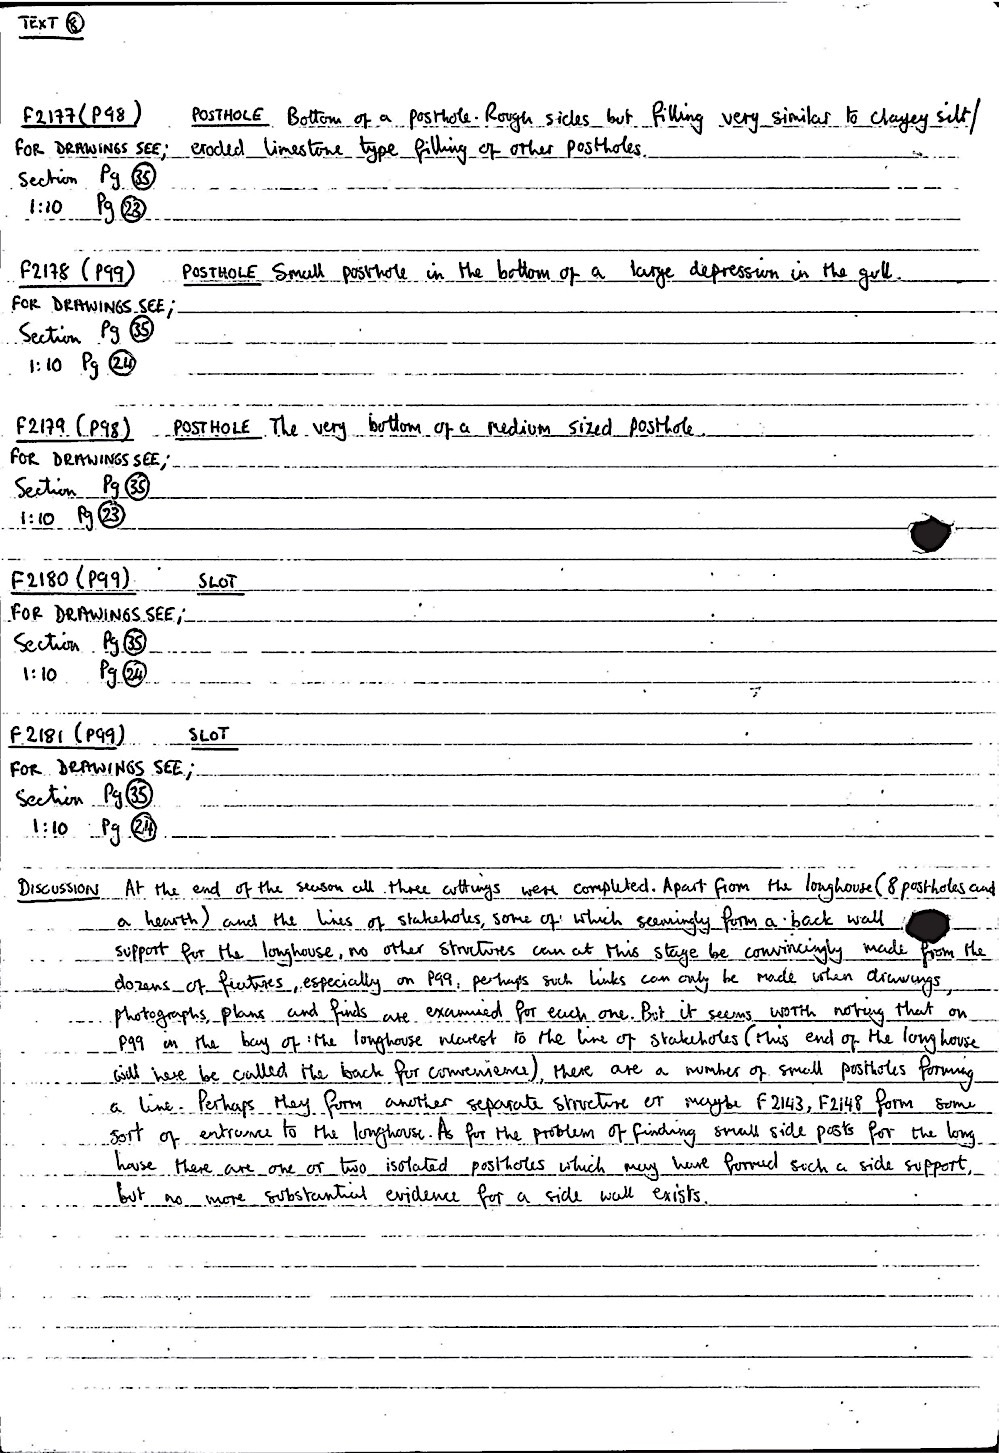 TEXT 8
F2177 (P98) POSTHOLE Bottom of a posthole. Rough sides but filling very similar to clayey silt/
FOR DRAWINGS SEE; eroded limestone type filling of other postholes.
Section Pg 35
1:10 Pg 23
F2178 (P99) POSTHOLE Small posthole in the bottom of a large depression in the gull.
FOR DRAWINGS SEE;
Section Pg 35
1:10 Pg 24
F2179 (P98) POSTHOLE The very bottom of a medium sized posthole.
FOR DRAWINGS SEE;
Section Pg 35
1:10 Pg 23
F2180 (P99) SLOT
FOR DRAWINGS SEE;
Section Pg 35
1:10 Pg 24
F2181 (P99) SLOT
FOR DRAWINGS SEE;
Section Pg 35
1:10 Pg 24
DISCUSSION At the end of the season all three cuttings were completed. Apart from the longhouse (8 postholes and
a hearth) and the lines of stakeholes, some of which seemingly form a back wall
support for the longhouse, no other structures can at this stage be convincingly made from the
dozens of features, especially on P99, perhaps such links can only be made when drawings,
photographs, plans and finds are examined for each one. But it seems worth noting that on
P99 in the bay of the longhouse nearest to the line of stakeholes (this end of the longhouse
will here be called the back for convenience), there are a number of small postholes forming
a line. Perhaps they form another separate structure or maybe F2143, F2148 form some
sort of entrance to the longhouse. As for the problem of finding small side posts for the long
house there are one or two isolated postholes which may have formed such a side support,
but no more substantial evidence for a side wall exists.